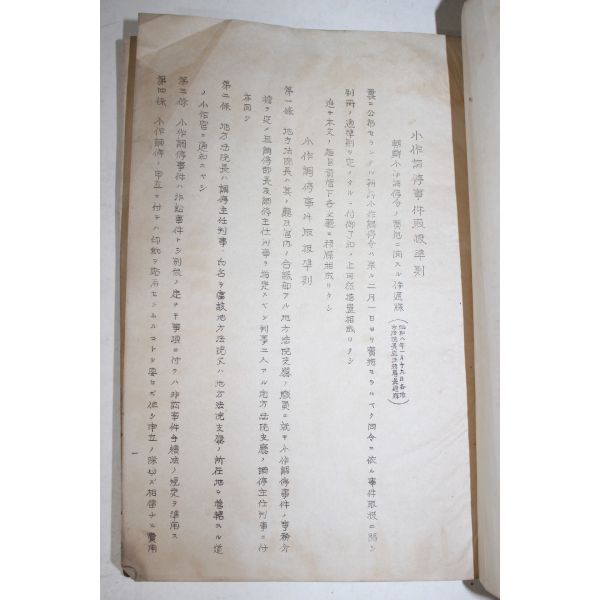 小作調停事件取扱準則
朝鮮小作調停令ノ實施ニ関スル件通牒
(昭和八年一月十九日各地方法院長
曩ニ公布セラレタル朝鮮小作調停令ハ来ル二月一日ヨリ實施セラルベク同令ニ依ル事件取扱ニ関シ
別冊ノ通準則ヲ定メタルニ付御了知ノ上可然措置相成リタシ
追テ本文ノ趣旨貴管下各支廳ニ移牒相成リタシ
小作調停事件取扱準則
第一條 地方法院長ハ其ノ廳及管内ノ合議部アル地方法院支廳ノ職員ニ就キ小作調停事件ノ事務分
擔ヲ定メ且調停部長及調停主任判事ヲ指定スベシ判事二人アル地方法院支廳ノ調停主任判事ニ付
亦同シ
第二條 地方法院長ハ調停主任判事ノ氏名ヲ當該地方法院又ハ地方法院支廳ノ所在地ヲ管轄スル道
ノ小作官ニ通知スベシ
第三條 小作調停事件ハ非訟事件トシ別段ノ定ナキ事項ニ付テハ非訟事件手續法ノ規定ヲ準用ス
第四條 小作調停ノ申立ニ付テハ印紙ヲ貼用セシムルコトヲ要セズ但シ申立ノ際
相當ナル費用
一